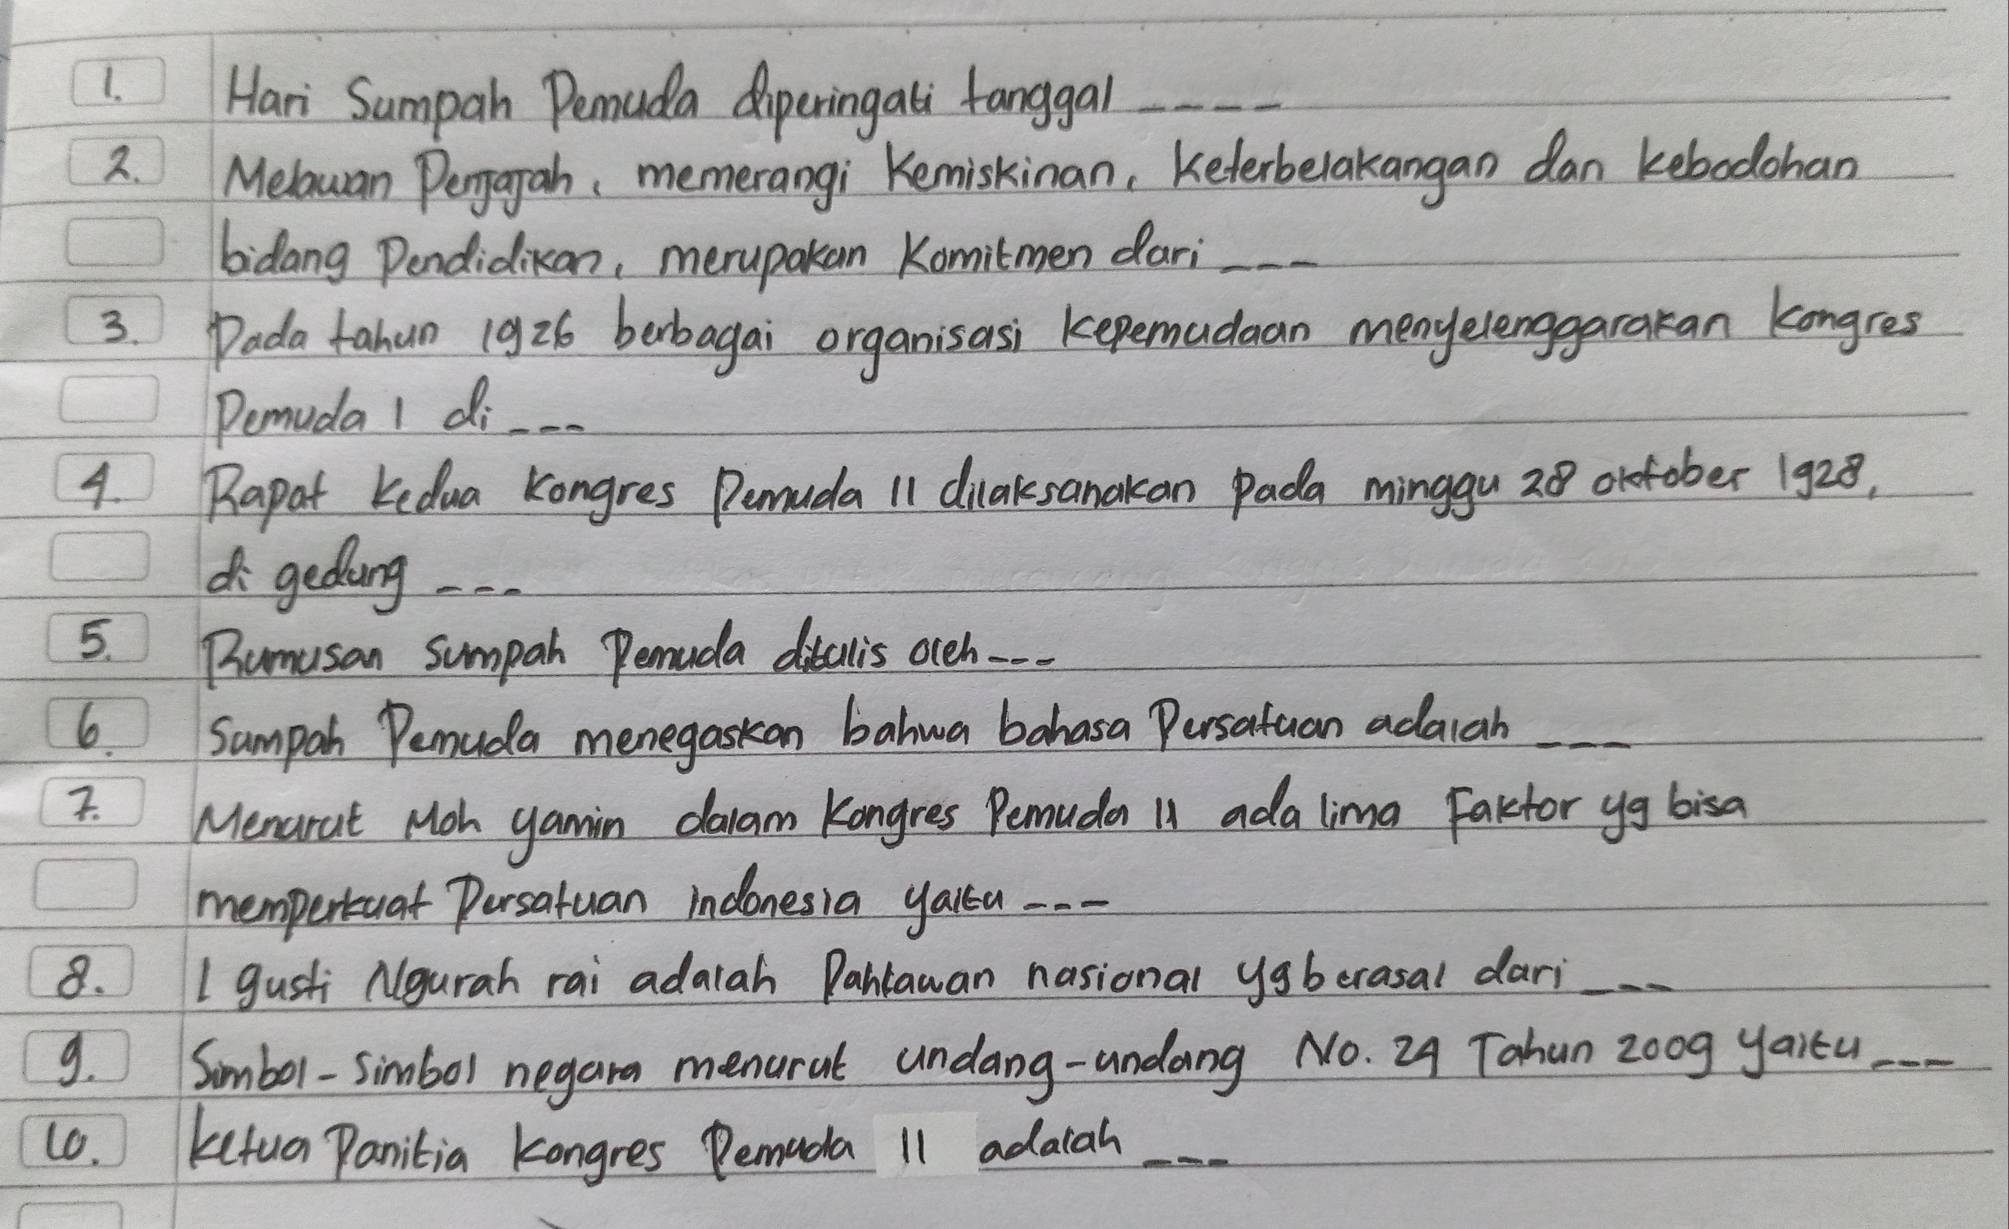 1. Hari Sumpah Pemuda diperingati tanggal ----
2. Melawan Penjajah, memerangi Kemiskinan, Keterbelakangan dan kebodohan
bidang Pendidikan, merupakan Komitmen dari ---
3. Pada tahun 1926 berbagai organisasi kepemudaan menyelenggarakan kongres
Pemuda 1 di ---
4. Rapat kedua kongres Pemuda 11 dilaksanakan pada minggu 28 oktober 1928,
di gedung ---
5. Rumusan sumpah Pemuda ditulis oleh ---
6. Sumpah Pemuda menegaskan bahwa bahasa Persatuan adalah ---
7. Menurut Moh yamin dalam Kongres Pemuda 11 ada lima Faktor yg bisa
memperkuat Persatuan indonesia yaitu ---
8. I gusti Ngurah rai adalah Pahlawan nasional yg berasal dari ---
9. Simbol-simbol negara menurut undang-undang No. 24 Tahun 2009 yaitu ---
10. Ketua Panitia kongres Pemuda 11 adalah ---